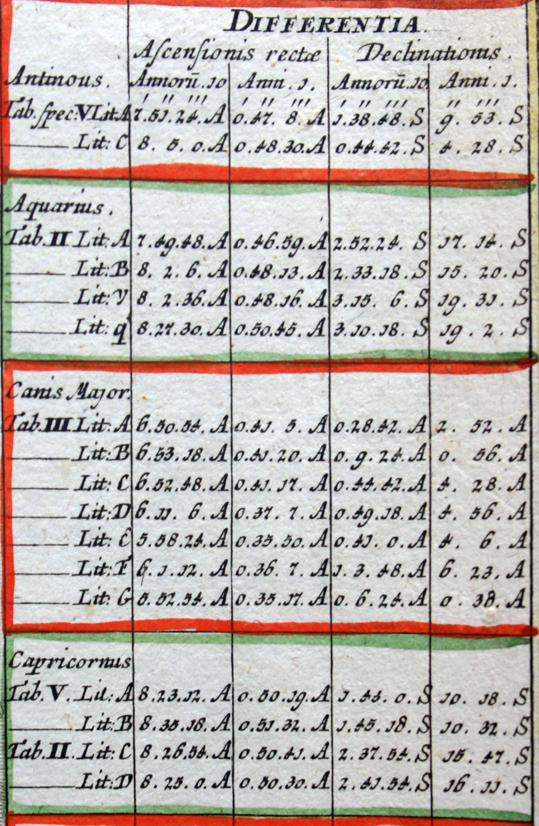 DIFFERENTIA.
Ascensionis rectæ Declinationis.
Antinous. Annorū.10 Anni.1. Annorū.10 Anni.1.
Tab.spec:V Lit:A 7.51.24.A 0.47. 8.A 1.38.48.S 9. 53.S
Lit: C 8. 5. 0.A 0.48.30.A 0.44.42.S 4. 28.S
Aquarius.
Tab.II Lit: A 7.49.48.A 0.46.59.A 2.52.24. S 17. 14. S
Lit:B 8. 2. 6.A 0.48.13.A 2.33.18.S 15. 20. S
Lit:γ 8. 2.36.A 0.48.16.A 3.15. 6.S 19. 31. S
Lit: q 8.27.30.A 0.50.45.A 3.10.18.S 19. 2. S
Canis Major.
Tab.III Lit: A 6.50.54.A 0.41. 5.A 0.28.42.A 2. 52.A
Lit:B 6.53.18.A 0.41.20.A 0. 9.24.A 0. 56.A
Lit: C 6.52.48.A 0.41.17.A 0.44.42.A 4. 28.A
Lit:D 6.11. 6.A 0.37. 7.A 0.49.18.A 4. 56.A
Lit: E 5.58.24.A 0.35.50.A 0.41. 0.A 4. 6.A
Lit:F 6. 1.12.A 0.36. 7.A 1. 3.48.A 6. 23.A
Lit: G 5.52.54.A 0.35.17.A 0. 6.24.A 0. 38.A
Capricornus
Tab.V. Lit: A 8.23.12.A 0.50.19.A 1.43. 0.S 10. 18. S
Lit:B 8.35.18.A 0.51.32.A 1.45.18.S 10. 32. S
Tab.II. Lit: C 8.26.54.A 0.50.41.A 2.37.54.S 15. 47. S
Lit:D 8. 25. 0.A 0.50.30.A 2.41.54.S 16. 11. S